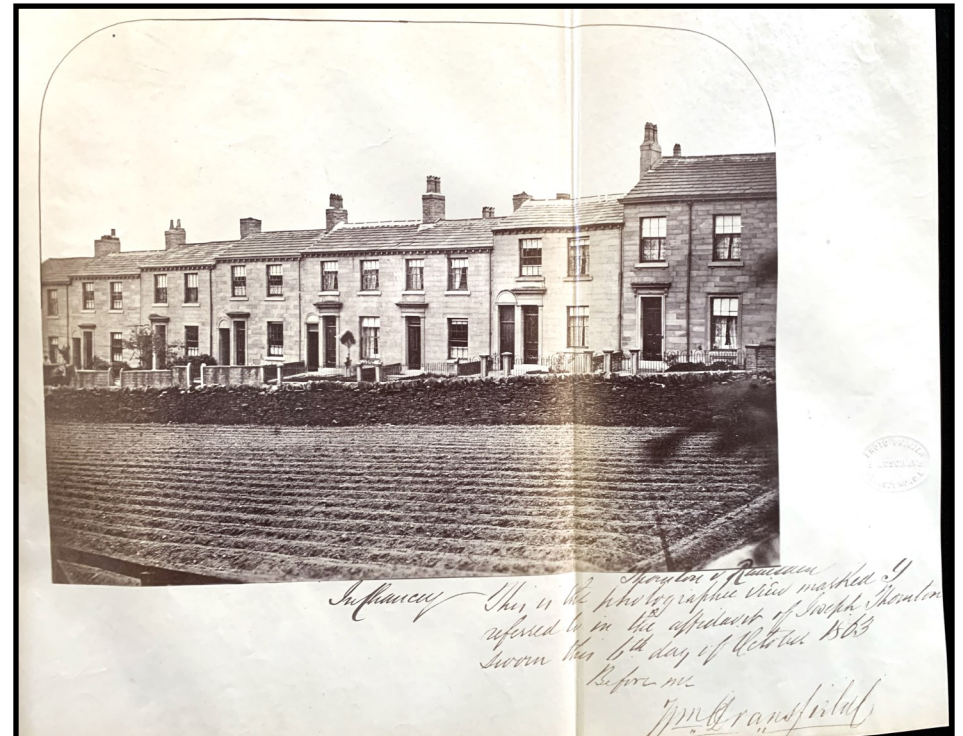 Thornton v Ramsden
In Chancery This is the photographic view marked Y
referred to in the affidavit of Joseph Thornton
sworn this 6th day of October 1863
Before me
Wm Dransfield